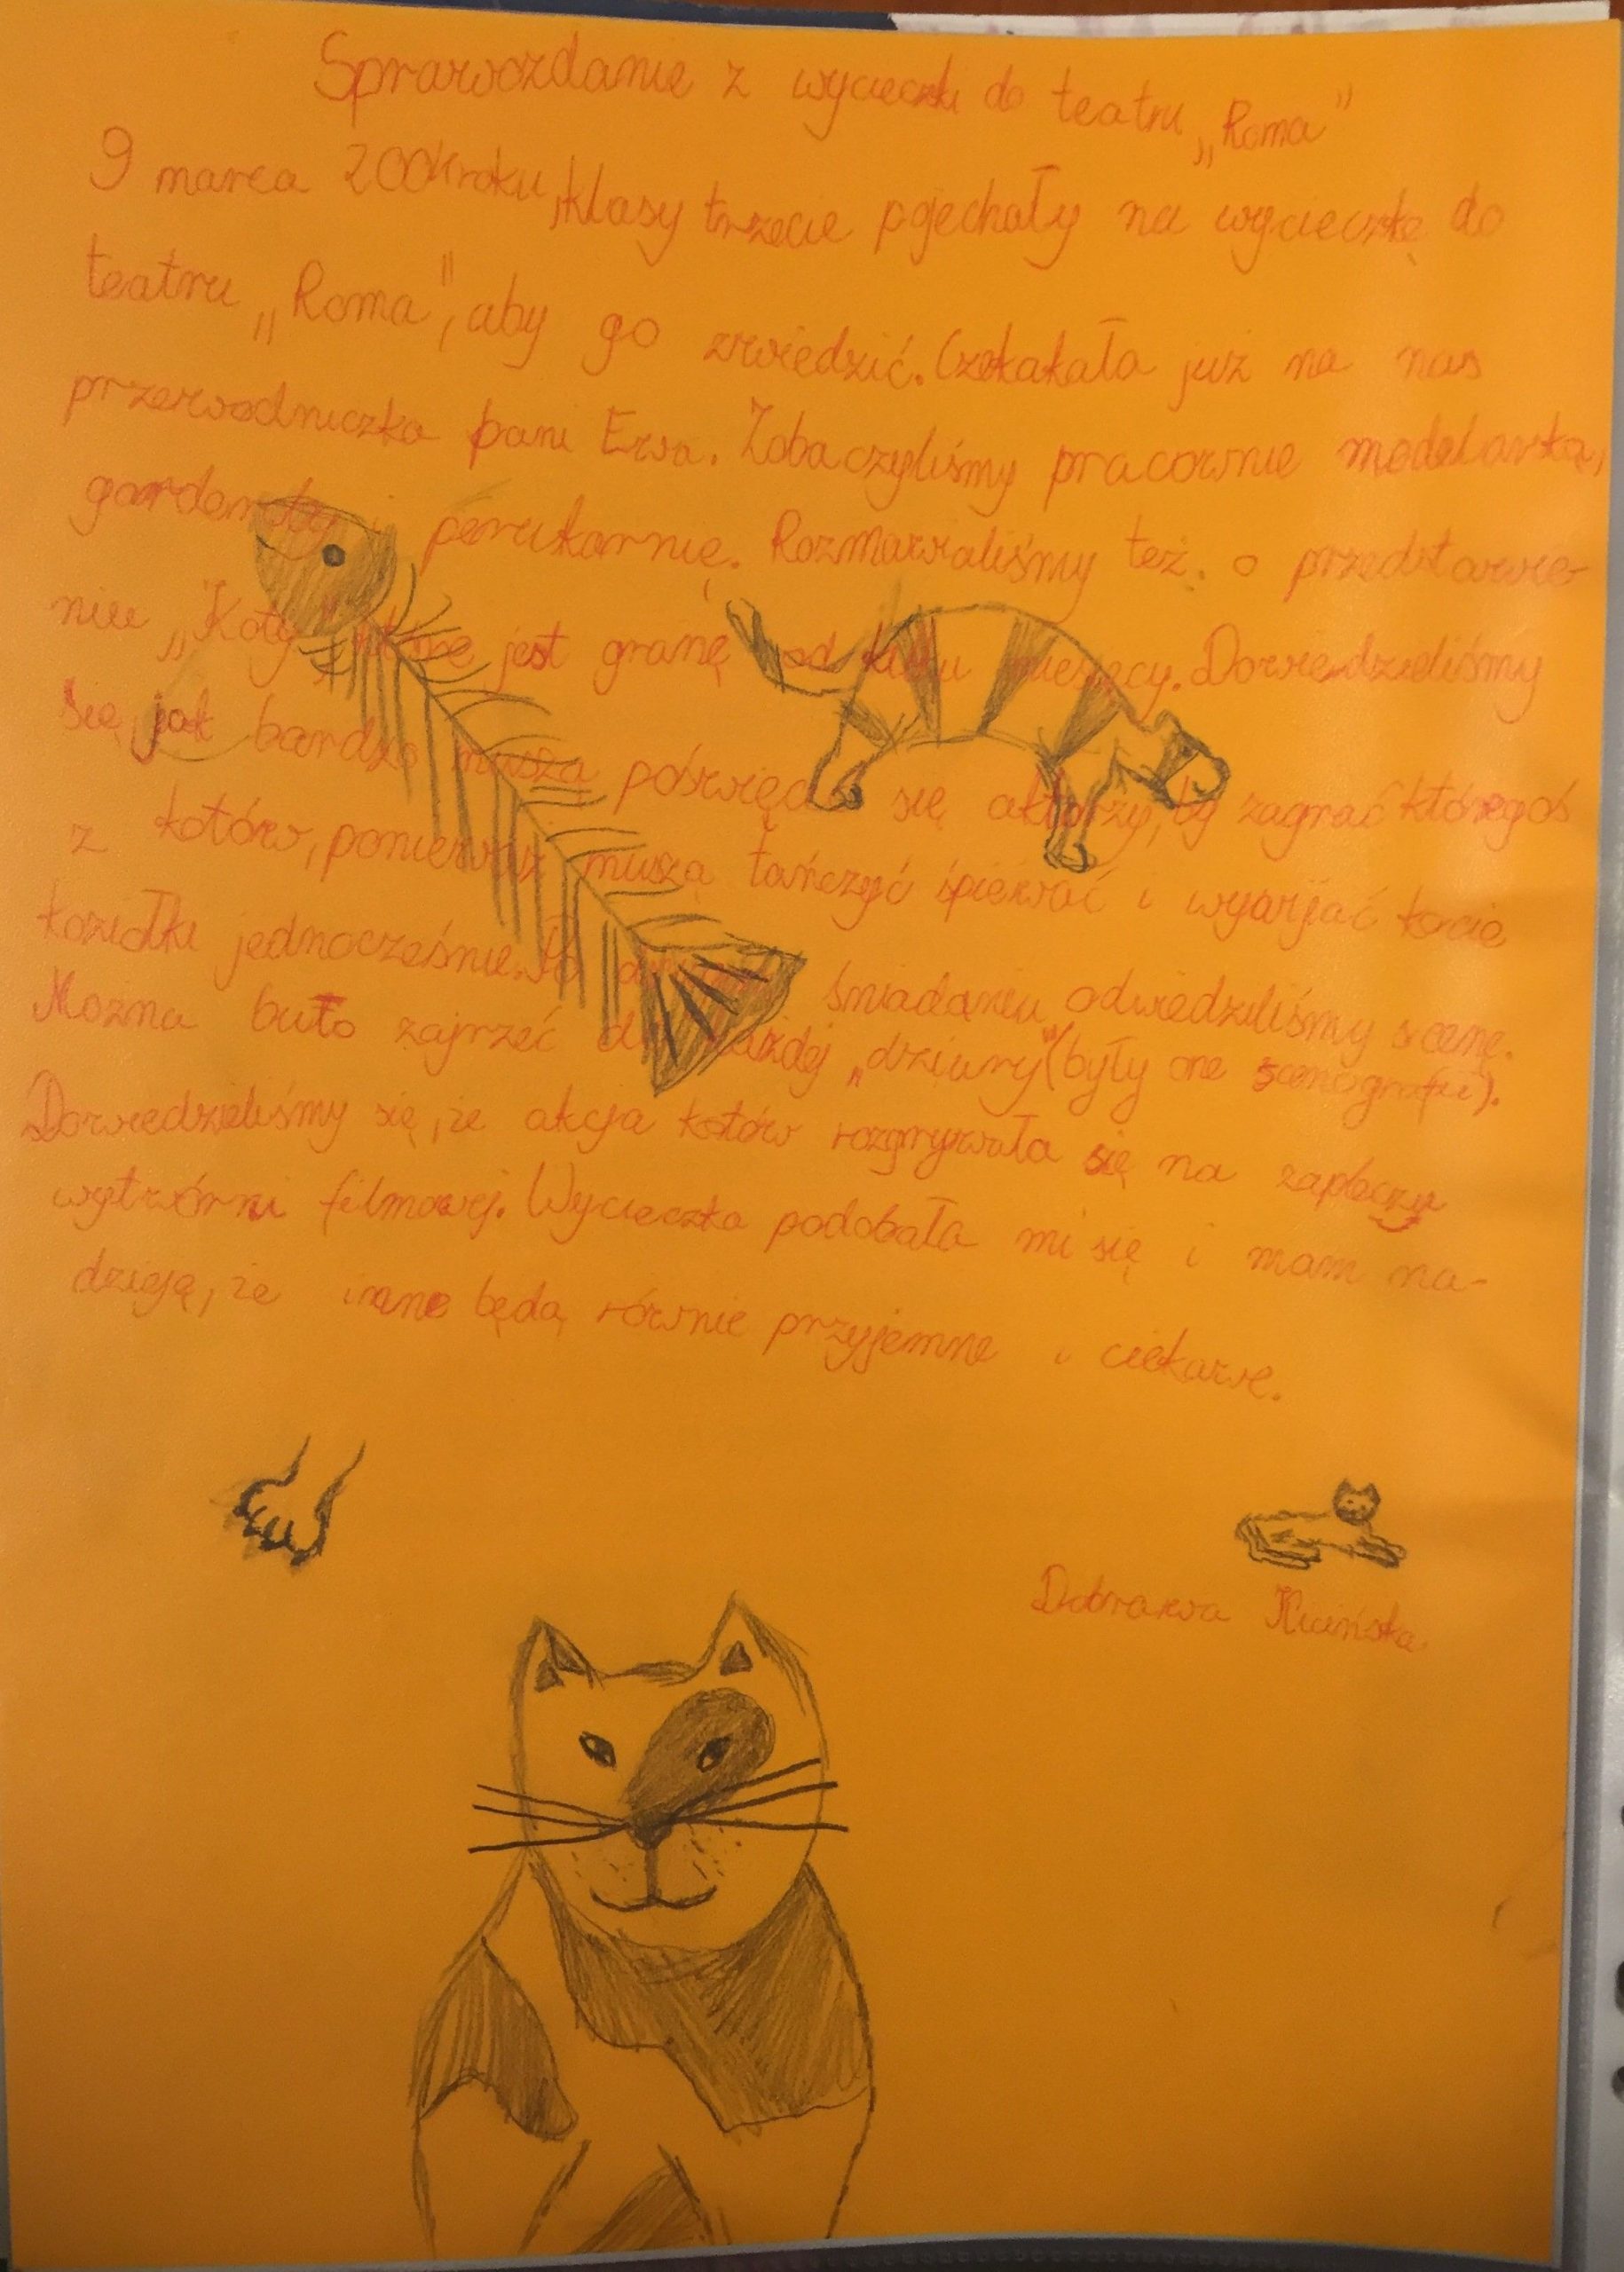 Sprawozdanie z wycieczki do teatru „Roma"
9 marca 2004roku, klasy trzecie pojechały na wycieczkę do
teatru „Roma", aby go zwiedzić. Czekakała już na nas
przewodniczka pani Ewa. Zobaczyliśmy pracownie modelarską,
garderoby i perukarnię. Rozmawialiśmy też o przedstawie-
niu „Koty" które jest granę od kilku miesięcy. Dowiedzieliśmy
się jak bardzo muszą poświęcać się aktorzy, by zagrać któregoś
z kotów, ponieważ muszą tańczyć śpiewać i wywijać kocie
koziołki jednocześnie. Po śniadaniu odwiedziliśmy scenę.
Mozna buło zajrzeć do każdej „dziury" (były one).
Dowiedzieliśmy się, że akcja kotów rozgrywała się na zapleczu
wytwórni filmowej. Wycieczka podobała mi się i mam na-
dzieję, że inne będą równie przyjemne i ciekawe.
Dobrawa